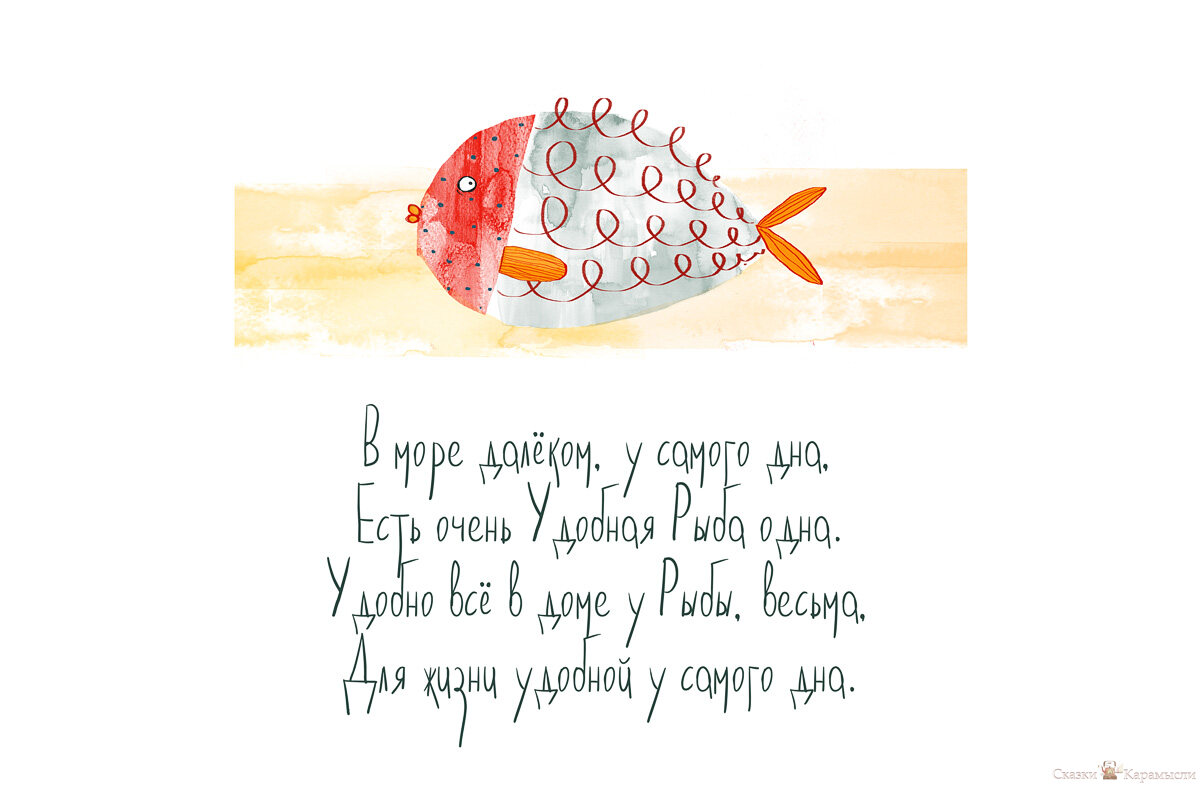 В море далёком, у самого дна,
Есть очень Удобная Рыба одна.
Удобно всё в доме у Рыбы, весьма,
Для жизни удобной у самого дна.
Сказки Карамысли